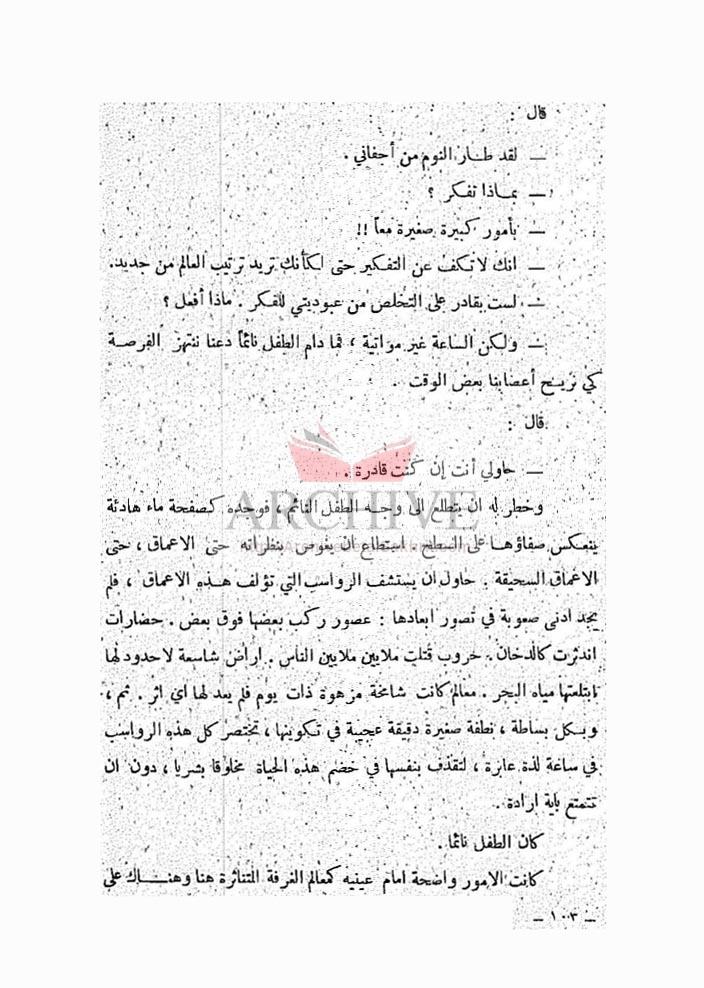 قال :
— لقد طار النوم من أجفاني .
— بماذا تفكر ؟
— بأمور كبيرة صغيرة معاً !!
— انك لا تكف عن التفكير حتى لكأنك تريد ترتيب العالم من جديد.
— لست بقادر على التخلص من عبوديتي للفكر . ماذا أفعل ؟
— ولكن الساعة غير مواتية ، فما دام الطفل نائماً دعنا ننتهز الفرصة
كي نريح أعصابنا بعض الوقت .
قال :
— حاولي أنت إن كنت قادرة .
ARCHIVE
وخطر له ان يتطلع الى وجه الطفل النائم ، فوجده كصفحة ماء هادئة
ينعكس صفاؤها على السطح . استطاع ان يغوص بنظراته حتى الاعماق ، حتى
الاعماق السحيقة . حاول ان يستشف الرواسب التي تؤلف هذه الاعماق ، فلم
يجد ادنى صعوبة في تصور ابعادها : عصور ركب بعضها فوق بعض . حضارات
اندثرت كالدخان . حروب قتلت ملايين ملايين الناس . اراض شاسعة لا حدود لها
ابتلعتها مياه البحر . معالم كانت شامخة مزهوة ذات يوم فلم يعد لها اي اثر . ثم ،
وبكل بساطة ، نطفة صغيرة دقيقة عجيبة في تكوينها ، تختصر كل هذه الرواسب
في ساعة لذة عابرة ، لتقذف بنفسها في خضم هذه الحياة مخلوقا بشريا ، دون ان
تتمتع باية ارادة .
كان الطفل نائما .
كانت الامور واضحة امام عينيه كمعالم الغرفة المتناثرة هنا وهناك على
— ١٠٣ —